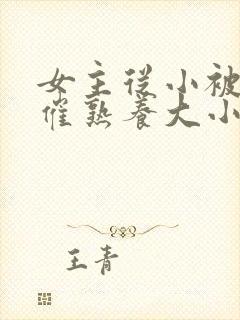 女主从小被
催熟养大小
王青